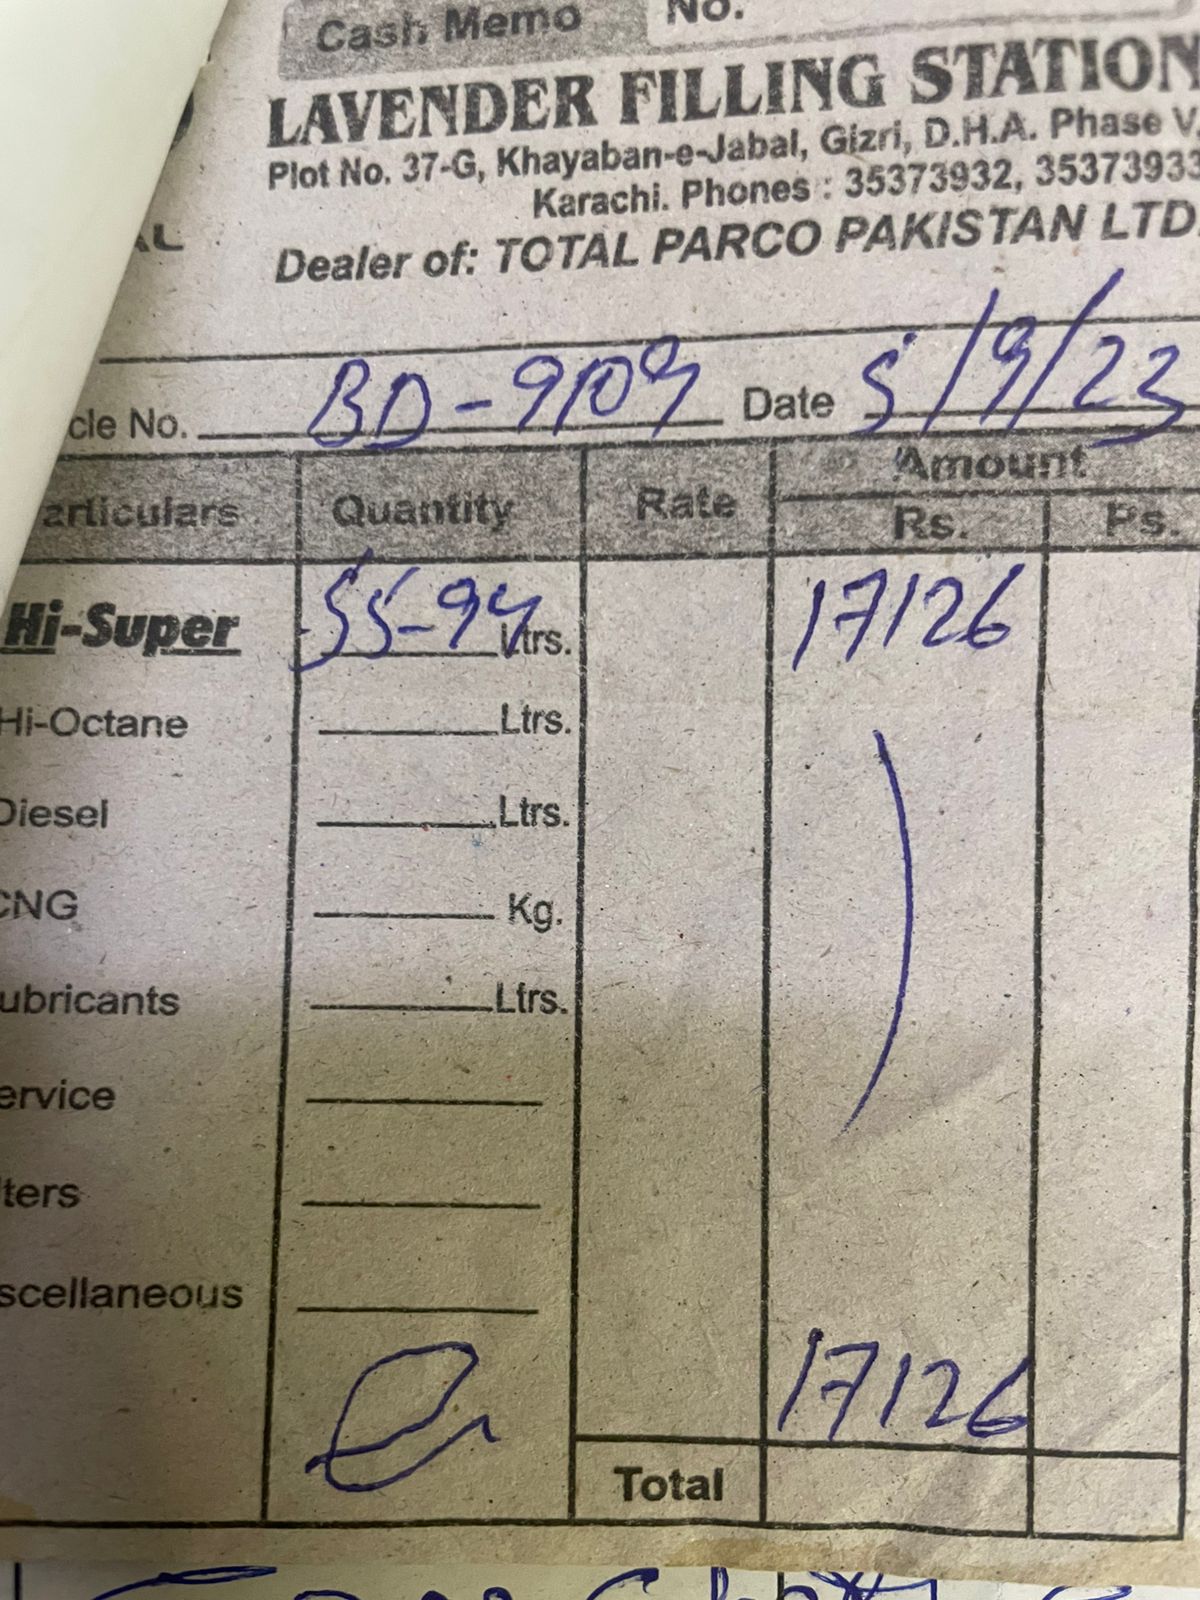 Cash Memo No.
LAVENDER FILLING STATION
Plot No. 37-G, Khayaban-e-Jabal, Gizri, D.H.A. Phase V,
Karachi. Phones : 35373932, 35373933
Dealer of: TOTAL PARCO PAKISTAN LTD.
cle No. BD-9109 Date 5/9/23
articulars Quantity Rate Amount
Rs. Ps.
Hi-Super 55-94 Ltrs. 17126
Hi-Octane Ltrs.
Diesel Ltrs.
CNG Kg.
ubricants Ltrs.
ervice
lters
scellaneous
17126
Total